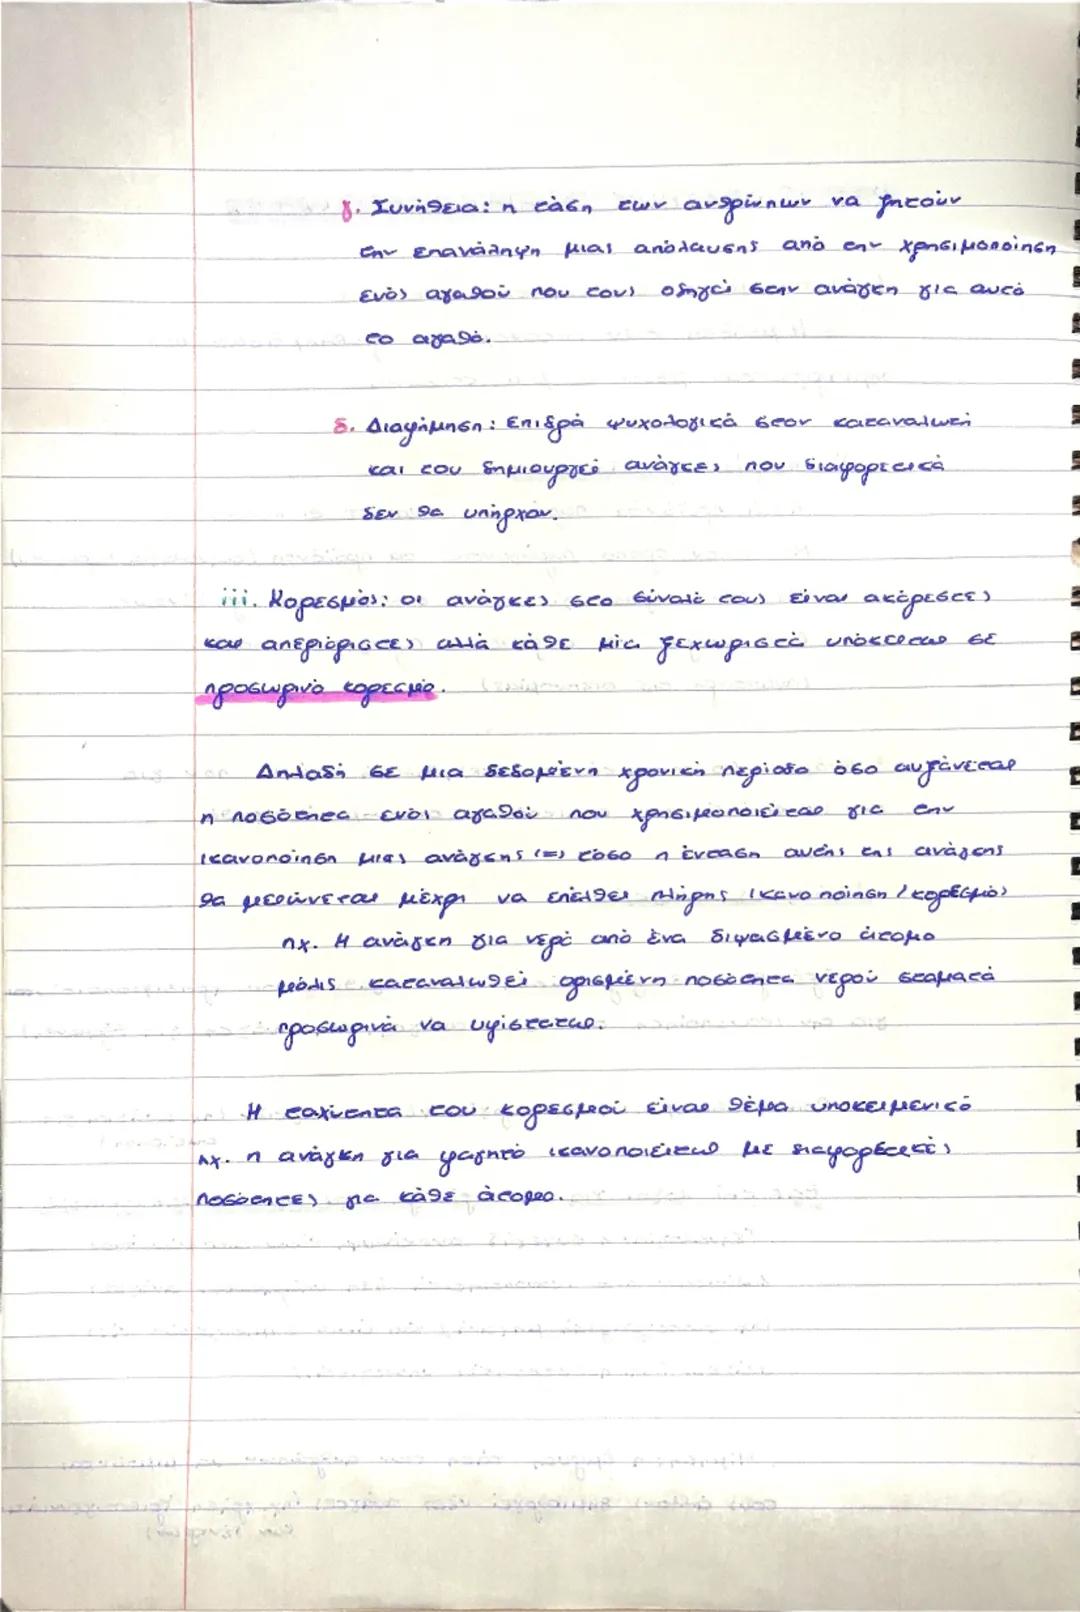 γ. Συνήθεια: η τάση των ανθρώπων να ζητούν
την επανάληψη μιας απόλαυσης από την χρησιμοποίηση
ενός αγαθού που τους οδηγεί στην ανάγκη για αυτό
το αγαθό.
δ. Διαφήμηση: Επιδρά ψυχολογικά στον καταναλωτή
και του δημιουργεί ανάγκες που διαφορετικά
δεν θα υπήρχαν.
iii. Κορεσμός: οι ανάγκες στο σύνολό τους είναι ακόρεστες
και απεριόριστες αλλά κάθε μία ξεχωριστά υπόκειται σε
προσωρινό κορεσμό.
Δηλαδή σε μια δεδομένη χρονική περίοδο όσο αυξάνεται
η ποσότητα ενός αγαθού που χρησιμοποιείται για την
ικανοποίηση μιας ανάγκης (=) τόσο η ένταση αυτής της ανάγκης
θα μειώνεται μέχρι να επέλθει πλήρης ικανοποίηση / κορεσμός
πχ. Η ανάγκη για νερό από ένα διψασμένο άτομο
μόλις καταναλωθεί ορισμένη ποσότητα νερού σταματά
προσωρινά να υφίσταται.
Η ταχύτητα του κορεσμού είναι θέμα υποκειμενικό
πχ. η ανάγκη για φαγητό ικανοποιείται με διαφορετικές
ποσότητες για κάθε άτομο.